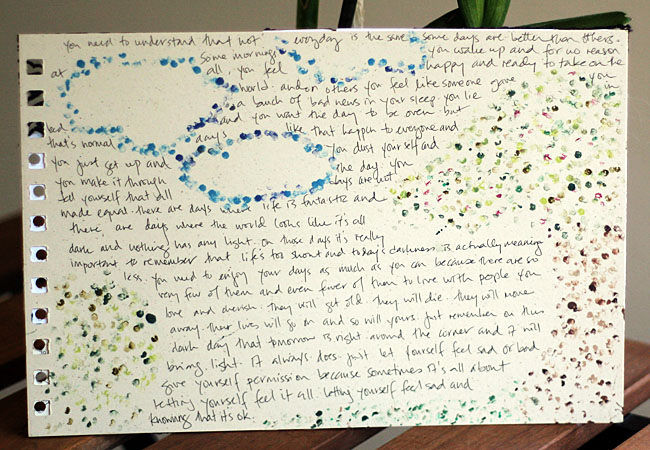 you need to understand that not everyday is the same. some days are better than others.
some mornings you wake up and for no reason
at all, you feel happy and ready to take on the
world. and on others you feel like someone gave you
a bunch of bad news in your sleep. you lie in
bed and you want the day to be over. but
that's normal. days like that happen to everyone and
you just get up and you dust yourself and
you make it through the day. you
tell yourself that all days are not
made equal. there are days where life is fantastic and
there are days where the world looks like it's all
dark and nothing has any light. on those days it's really
important to remember that life's too short and today's darkness is actually meaning
less. you need to enjoy your days as much as you can because there are so
very few of them and even fewer of them to live with people you
love and cherish. they will get old. they will die. they will move
away. their lives will go on and so will yours. just remember on the
dark day that tomorrow is right around the corner and it will
bring light. it always does. just let yourself feel sad or bad
give yourself permission because sometimes it's all about
letting yourself feel it all. letting yourself feel sad and
knowing that it's ok.